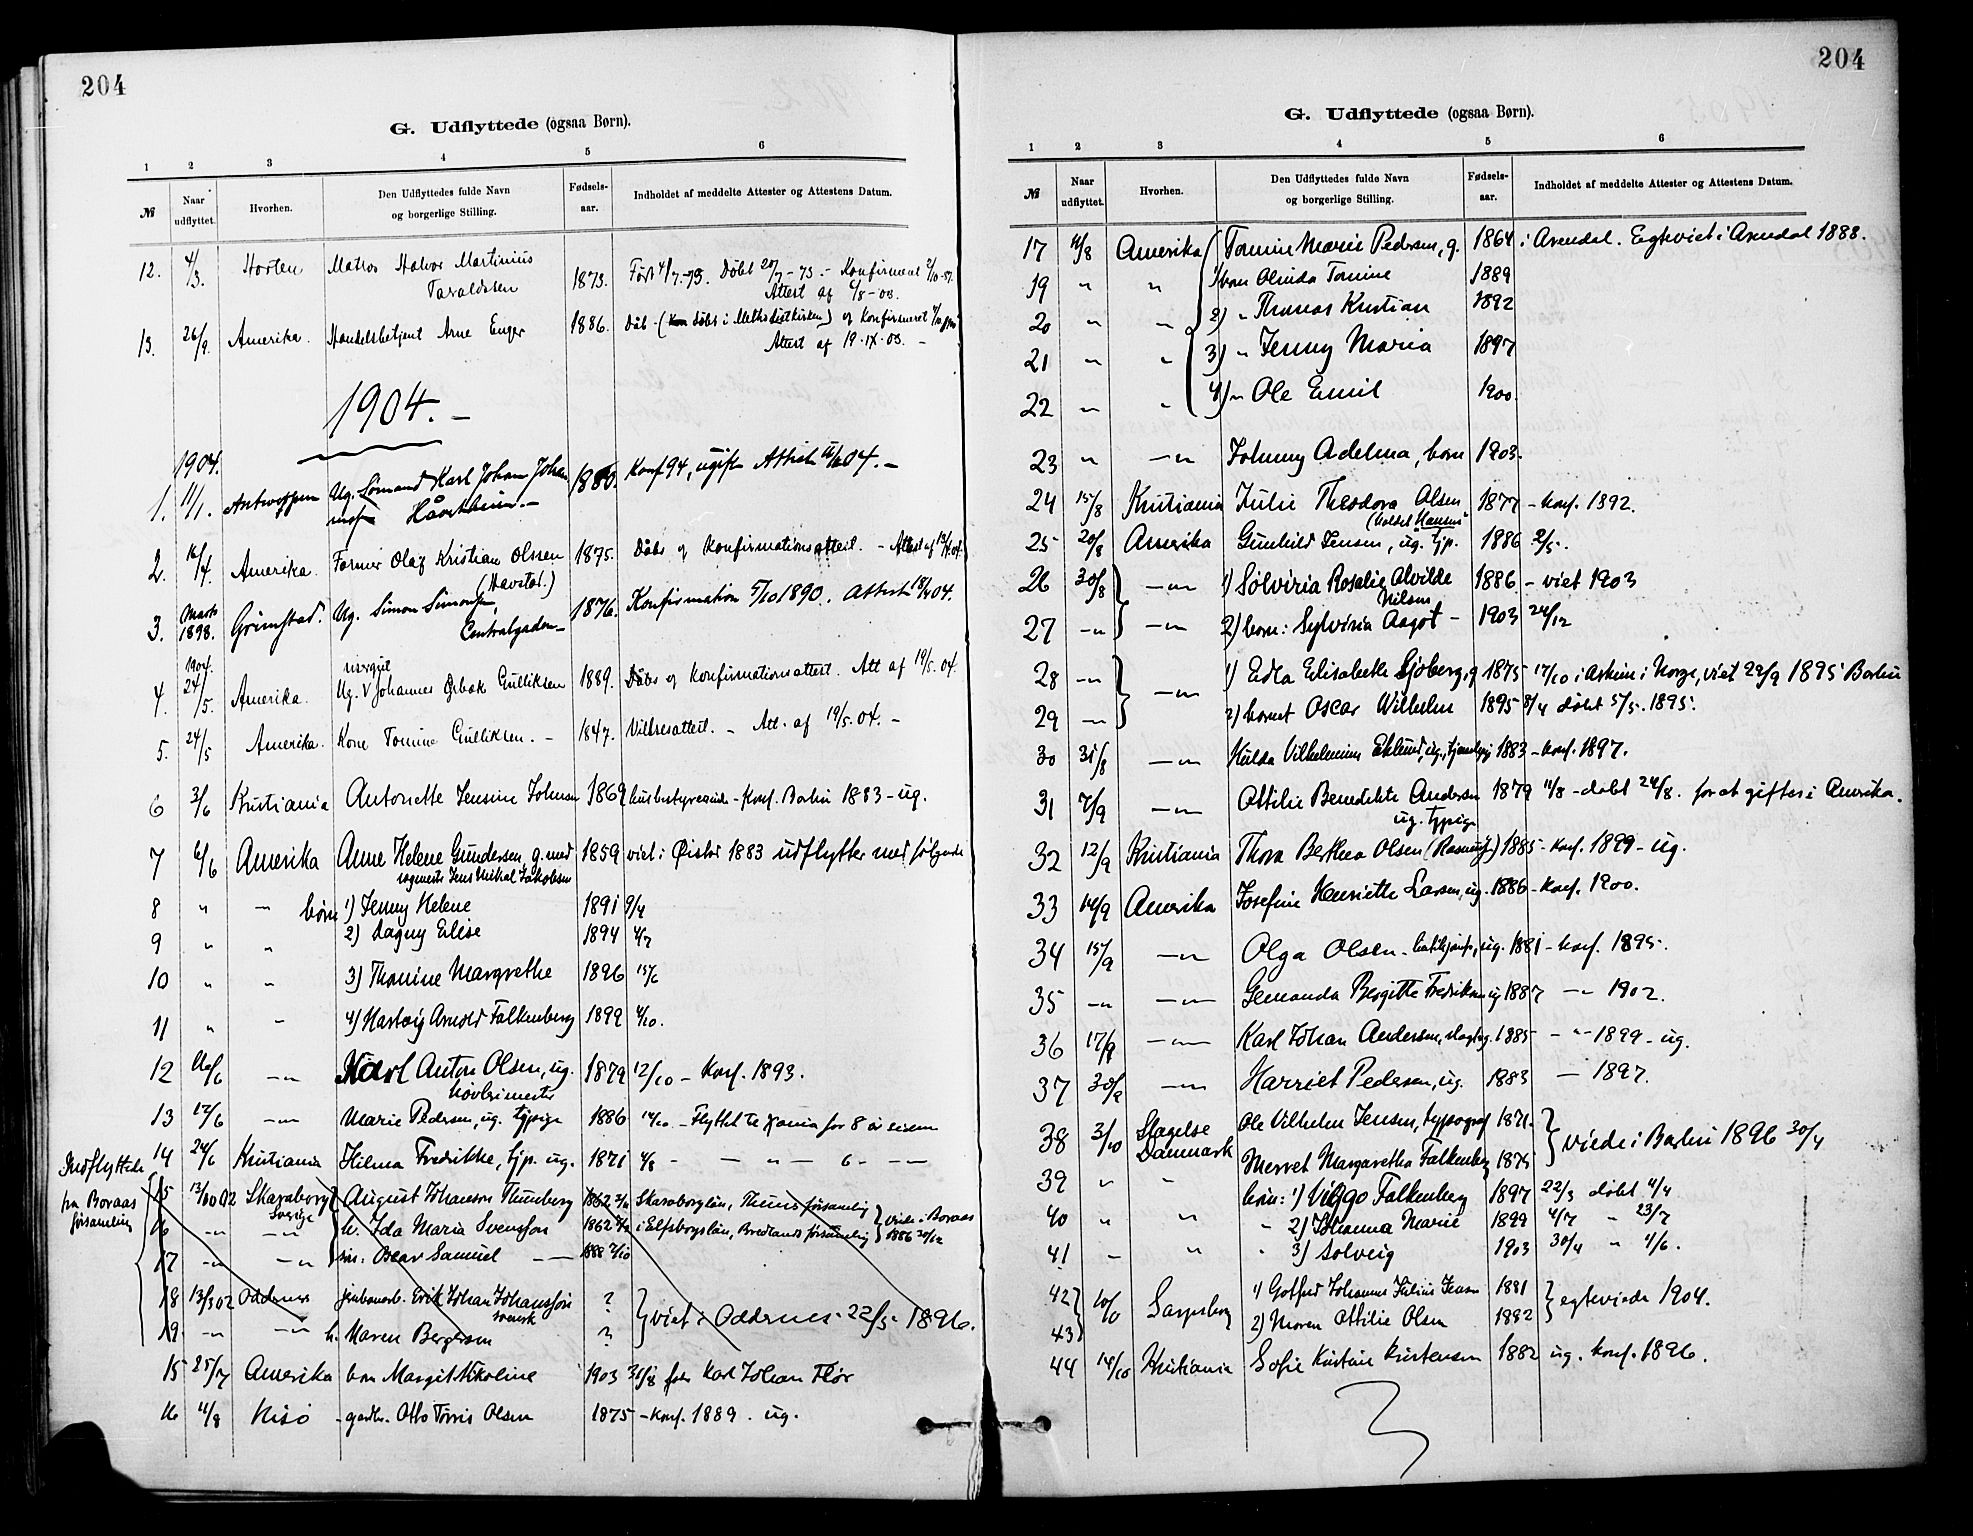 204
G. Udflyttede (ogsaa Børn).
1 2 3 4 5 6
№ Naar udflyttet. Hvorhen. Den Udflyttedes fulde Navn og borgerlige Stilling. Fødsels-aar. Indholdet af meddelte Attester og Attestens Datum.
12. 4/3. Horten Matros Halvor Martinius 1873.
Taraldsen
Attest af
13. 26/9. Amerika. Handelsbetjent Arne Enger 1886.
Attest af 19.IX.03. -
1904. -
1904.
1. 11/1. Antwerpen Ug. Sømand Karl Johan Johan 1880. Konf 94, ugift Attest
2. Amerika. Farmer Olaf Kristian Olssen 1875. Daabs og Konfirmationsattest.
(Havstad.)
3. Marts 1898. Grimstad. Ug. Simon Simonsen, 1876. Konfirmation 5/10 1890. Attest
Centralgaden
1904.
4. 24/5. Amerika. Ug. Johannes Ørbæk Gulliksen 1889. Daabs og Konfirmationsattest. Att af 19/5.04.
5. 24/5 Amerika. Kone Tomine Gulliksen. - 1847. Att. af 19/5.04. -
6 3/6 Kristiania Antonette Jensine Johnsen 1869 husbestyrerinde - Konf. Barbu 1883 - ug.
7 6/6 Amerika Anne Helene Gundersen, g. med 1859 viet i Øiestad 1883 udflytter med følgende
Jens Mikal Jakobsen
8 " - børn 1) Jenny Helene 1891 9/4
9 " " 2) Dagny Elise 1894 4/7
10 " " 3) Thomine Margrethe 1896 15/6
11 " " 4) Hartvig Arnold Falkenberg 1899 4/10.
12 -"- Karl Anton Olsen, ug. 1879 12/10 - Konf. 1893.
høvlerimester
13 12/6 -"- Marie Pedersen, ug. tjpige 1886 14/10 - Flyttet te Xania for 8 år siden
Indflyttede 14 24/6 Kristiania Hilma Fredrikke, tjp. ug. 1871 4/8 - - " - 6 - -
fra Boraas 15 13/10 02 Skaraborg August Johanson Thunberg 1862 Skaraborglän, församling
församling Sverige
16 -"- -"- h. Ida Maria Svensson 1862 i Elfsborgslän, Bredlands församling viede i Boraas 1886
17 -"- -"- Oscar Samuel 1888 2/10
18 13/3 02 Oddernes jernbanearb. Erik Johan Johansson ?
svensk
viet i Oddernes 22/5 1896.
19 -"- -"- h. Maren Bergersen ?
15 25/7 Amerika barn Margit Nikoline 1903 31/8 far Karl Johan Flør
16 11/8 Hisø Otto Tørris Olsen 1875 - Konf. 1889. ug.
204
G. Udflyttede (ogsaa Børn).
1 2 3 4 5 6
№ Naar udflyttet. Hvorhen. Den Udflyttedes fulde Navn og borgerlige Stilling. Fødsels-aar. Indholdet af meddelte Attester og Attestens Datum.
17 11/8 Amerika Tomine Marie Pedersen, g. 1864 i Arendal. Egteviet i Arendal 1888.
19 " " 1) barn Olinda Tomine 1889
20 " " 2) " Thomas Kristian 1892
21 " " 3) " Jenny Maria 1897
22 " " 4) " Ole Emil 1900
23 " -"- Johnny Adelma, barn 1903.
24 15/8 Kristiania Julie Theodora Olsen 1877 - Konf. 1892.
(kaldet Hansen)
25 20/8 Amerika Gunhild Jensen, ug. tjp. 1886 2/5.
26 30/8 -"- 1) Sølviria Rosalie Alvilde 1886 - viet 1903
Nilsen
27 -"- -"- 2) barn: Sylviria Aagot - 1903 24/12
28 -"- -"- 1) Edla Elisabeth Sjöberg, g 1875 17/10 i Askim i Norge, viet 29/9 1895 Barbu
29 -"- 2) barnet Oscar Wilhelm 1895 8/4 døbt 5/5. 1895.
30 31/8 -"- Hulda Vilhelmine Eklund, ug. 1883 - Konf. 1897.
31 7/9 -"- Ottilie Benedikte Andersen 1879 11/8 - døbt 24/8. for at giftes i Amerika.
ug. tjpige
32 12/9 Kristiania Thora Berthea Olsen 1885 - Konf. 1899 - ug.
33 14/9 Amerika Josefine Henriette Larsen, ug. 1886 - Konf. 1900.
34 15/9 -"- Olga Olsen - butikjomf., ug. 1881 - Konf. 1895.
35 -"- -"- Bergitte Fredriksen ug 1887 -"- 1902.
36 17/9 -"- Karl Johan Andersen, 1885 -"- 1899 - ug.
37 30/9 -"- Harriet Pedersen, ug. 1883 - 1897.
38 3/10 Slagelse Danmark Ole Vilhelm Jensen, typograf 1871.
viede i Barbu 1896 30/4
39 " " Merret Margaretha Falkenberg 1875
børn: 1) Viggo Falkenberg 1897 22/3 døbt 4/4
40 " " " 2) Johanna Marie 1899 4/7 " 23/7
41 - " " 3) Solveig 1903 30/4 " 4/6.
42 10/10 Sarpsborg 1) Gotfred Johannes Julius Jensen 1881
egteviede 1904.
43 2) Maren Ottilie Olsen 1882
44 14/10 Kristiania Sofie Kirstine Kristensen 1882 ug. Konf. 1896.